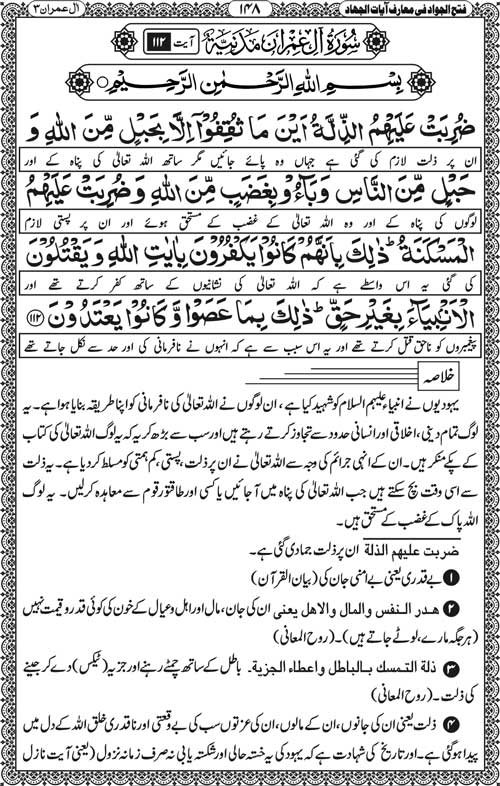 فتح الجواد فی معارف آیات الجهاد ۱۴۸ آل عمران ۳
سُوْرَةُ اٰلِ عِمْرَان مَدَنِيَّةٌ آیت ۱۱۲
بِسْمِ اللهِ الرَّحْمٰنِ الرَّحِيْمِ
ضُرِبَتْ عَلَيْهِمُ الذِّلَّةُ اَيْنَ مَا ثُقِفُوْٓا اِلَّا بِحَبْلٍ مِّنَ اللهِ وَ
ان پر ذلت لازم کی گئی ہے جہاں وہ پائے جائیں مگر ساتھ اللہ تعالیٰ کی پناہ کے اور
حَبْلٍ مِّنَ النَّاسِ وَبَآءُوْ بِغَضَبٍ مِّنَ اللهِ وَ ضُرِبَتْ عَلَيْهِمُ
لوگوں کی پناہ کے اور وہ اللہ تعالیٰ کے غضب کے مستحق ہوئے اور ان پر پستی لازم
الْمَسْكَنَةُ ؕ ذٰلِكَ بِاَنَّهُمْ كَانُوْا يَكْفُرُوْنَ بِاٰيٰتِ اللهِ وَ يَقْتُلُوْنَ
کی گئی یہ اس واسطے ہے کہ اللہ تعالیٰ کی نشانیوں کے ساتھ کفر کرتے تھے اور
الْاَنْۢبِيَآءَ بِغَيْرِ حَقٍّ ؕ ذٰلِكَ بِمَا عَصَوْا وَّ كَانُوْا يَعْتَدُوْنَ ﴿۱۱۲﴾
پیغمبروں کو ناحق قتل کرتے تھے اور یہ اس سبب سے ہے کہ انہوں نے نافرمانی کی اور حد سے نکل جاتے تھے
خلاصہ
یہودیوں نے انبیاء علیہم السلام کو شہید کیا ہے، ان لوگوں نے اللہ تعالیٰ کی نافرمانی کو اپنا طریقہ بنایا ہوا ہے۔ یہ
لوگ تمام دینی، اخلاقی اور انسانی حدود سے تجاوز کرتے رہتے ہیں اور سب سے بڑھ کر یہ کہ یہ لوگ اللہ تعالیٰ کی کتاب
کے پکے منکر ہیں۔ ان کے انہی جرائم کی وجہ سے اللہ تعالیٰ نے ان پر ذلت، پستی، کم ہمتی کو مسلط کردیا ہے۔ یہ ذلت
سے اسی وقت بچ سکتے ہیں جب اللہ تعالیٰ کی پناہ میں آجائیں یا کسی اور طاقتور قوم سے معاہدہ کرلیں۔ یہ لوگ
اللہ پاک کے غضب کے مستحق ہیں۔
ضربت علیهم الذلة ان پر ذلت جمادی گئی ہے۔
۱ بے قدری یعنی بے امنی جان کی (بیان القرآن)
۲ هدر النفس والمال والاهل یعنی ان کی جان، مال اور اہل وعیال کے خون کی کوئی قدر و قیمت نہیں
(ہر جگہ مارے، لوٹے جاتے ہیں)۔ (روح المعانی)
۳ ذلة التمسك بالباطل واعطاء الجزیة۔ باطل کے ساتھ چمٹے رہنے اور جزیہ (ٹیکس) دے کر جینے
کی ذلت۔ (روح المعانی)
۴ ذلت یعنی ان کی جانوں، ان کے مالوں، ان کی عزتوں سب کی بے وقعتی اور ناقدری خلق اللہ کے دل میں
پیدا ہوگئی ہے۔ اور تاریخ کی شہادت ہے کہ یہود کی یہ خستہ حالی اور شکستہ یابی نہ صرف زمانہ نزول (یعنی آیت نازل